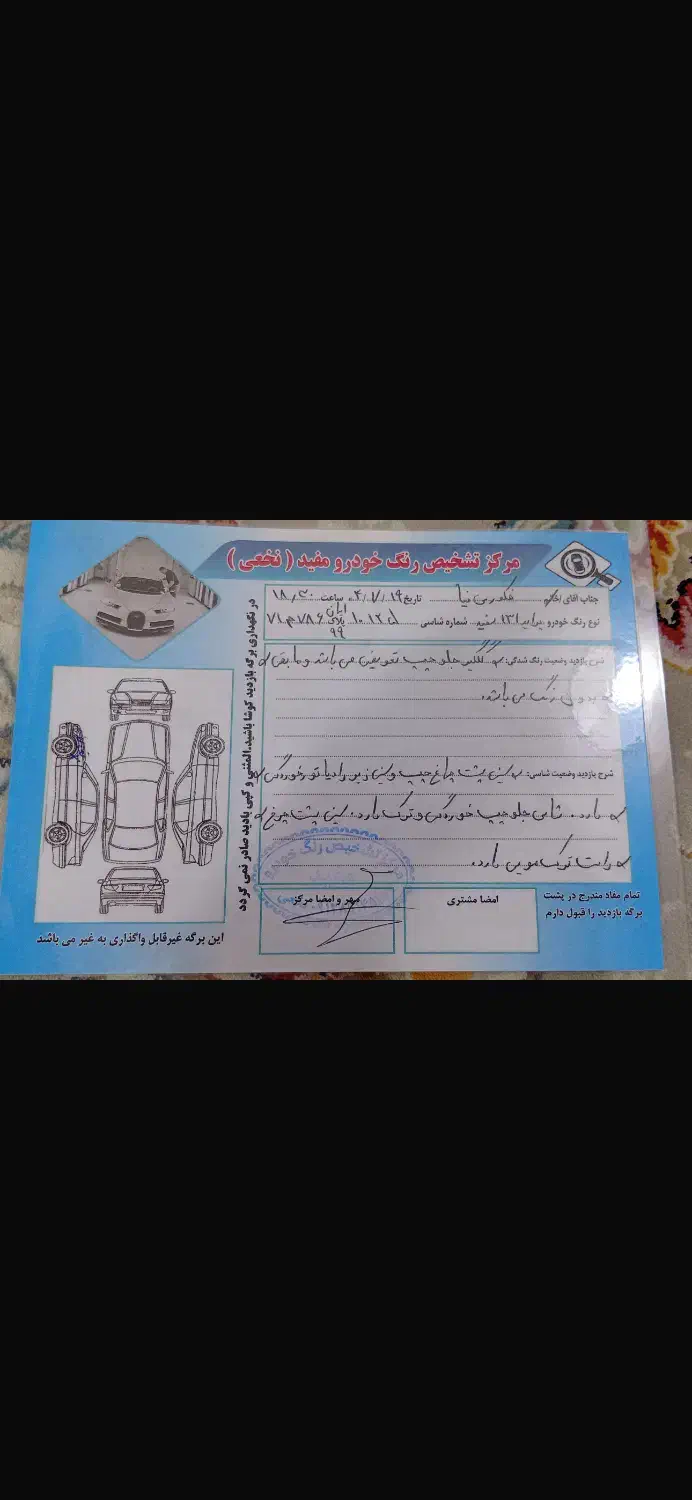 مرکز تشخیص رنگ خودرو مفید ( نخعی )
جناب آقای/خانم تاریخ ۰۴/۷/۱۹ ساعت ۱۸/۳۰
نوع رنگ خودرو پراید ۱۳۱ سفید شماره شاسی پلاک ۷۸۶ ۷۱
ایران
۹۹
شرح بازدید وضعیت رنگ شدگی: گلگیر جلو چپ تعویض می باشد و مابقی
بدون رنگ می باشد.
شرح بازدید وضعیت شاسی: سینی پشت چراغ چپ و سینی زیر رادیاتور خوردگی
دارد. شاسی جلو چپ خوردگی و ترک دارد. سینی پشت چراغ
راست ترک مویی دارد.
در نگهداری برگه بازدید کوشا باشید، المثنی و کپی بازدید صادر نمی گردد
مهر و امضا مرکز
امضا مشتری
تمام مفاد مندرج در پشت
برگه بازدید را قبول دارم
این برگه غیرقابل واگذاری به غیر می باشد